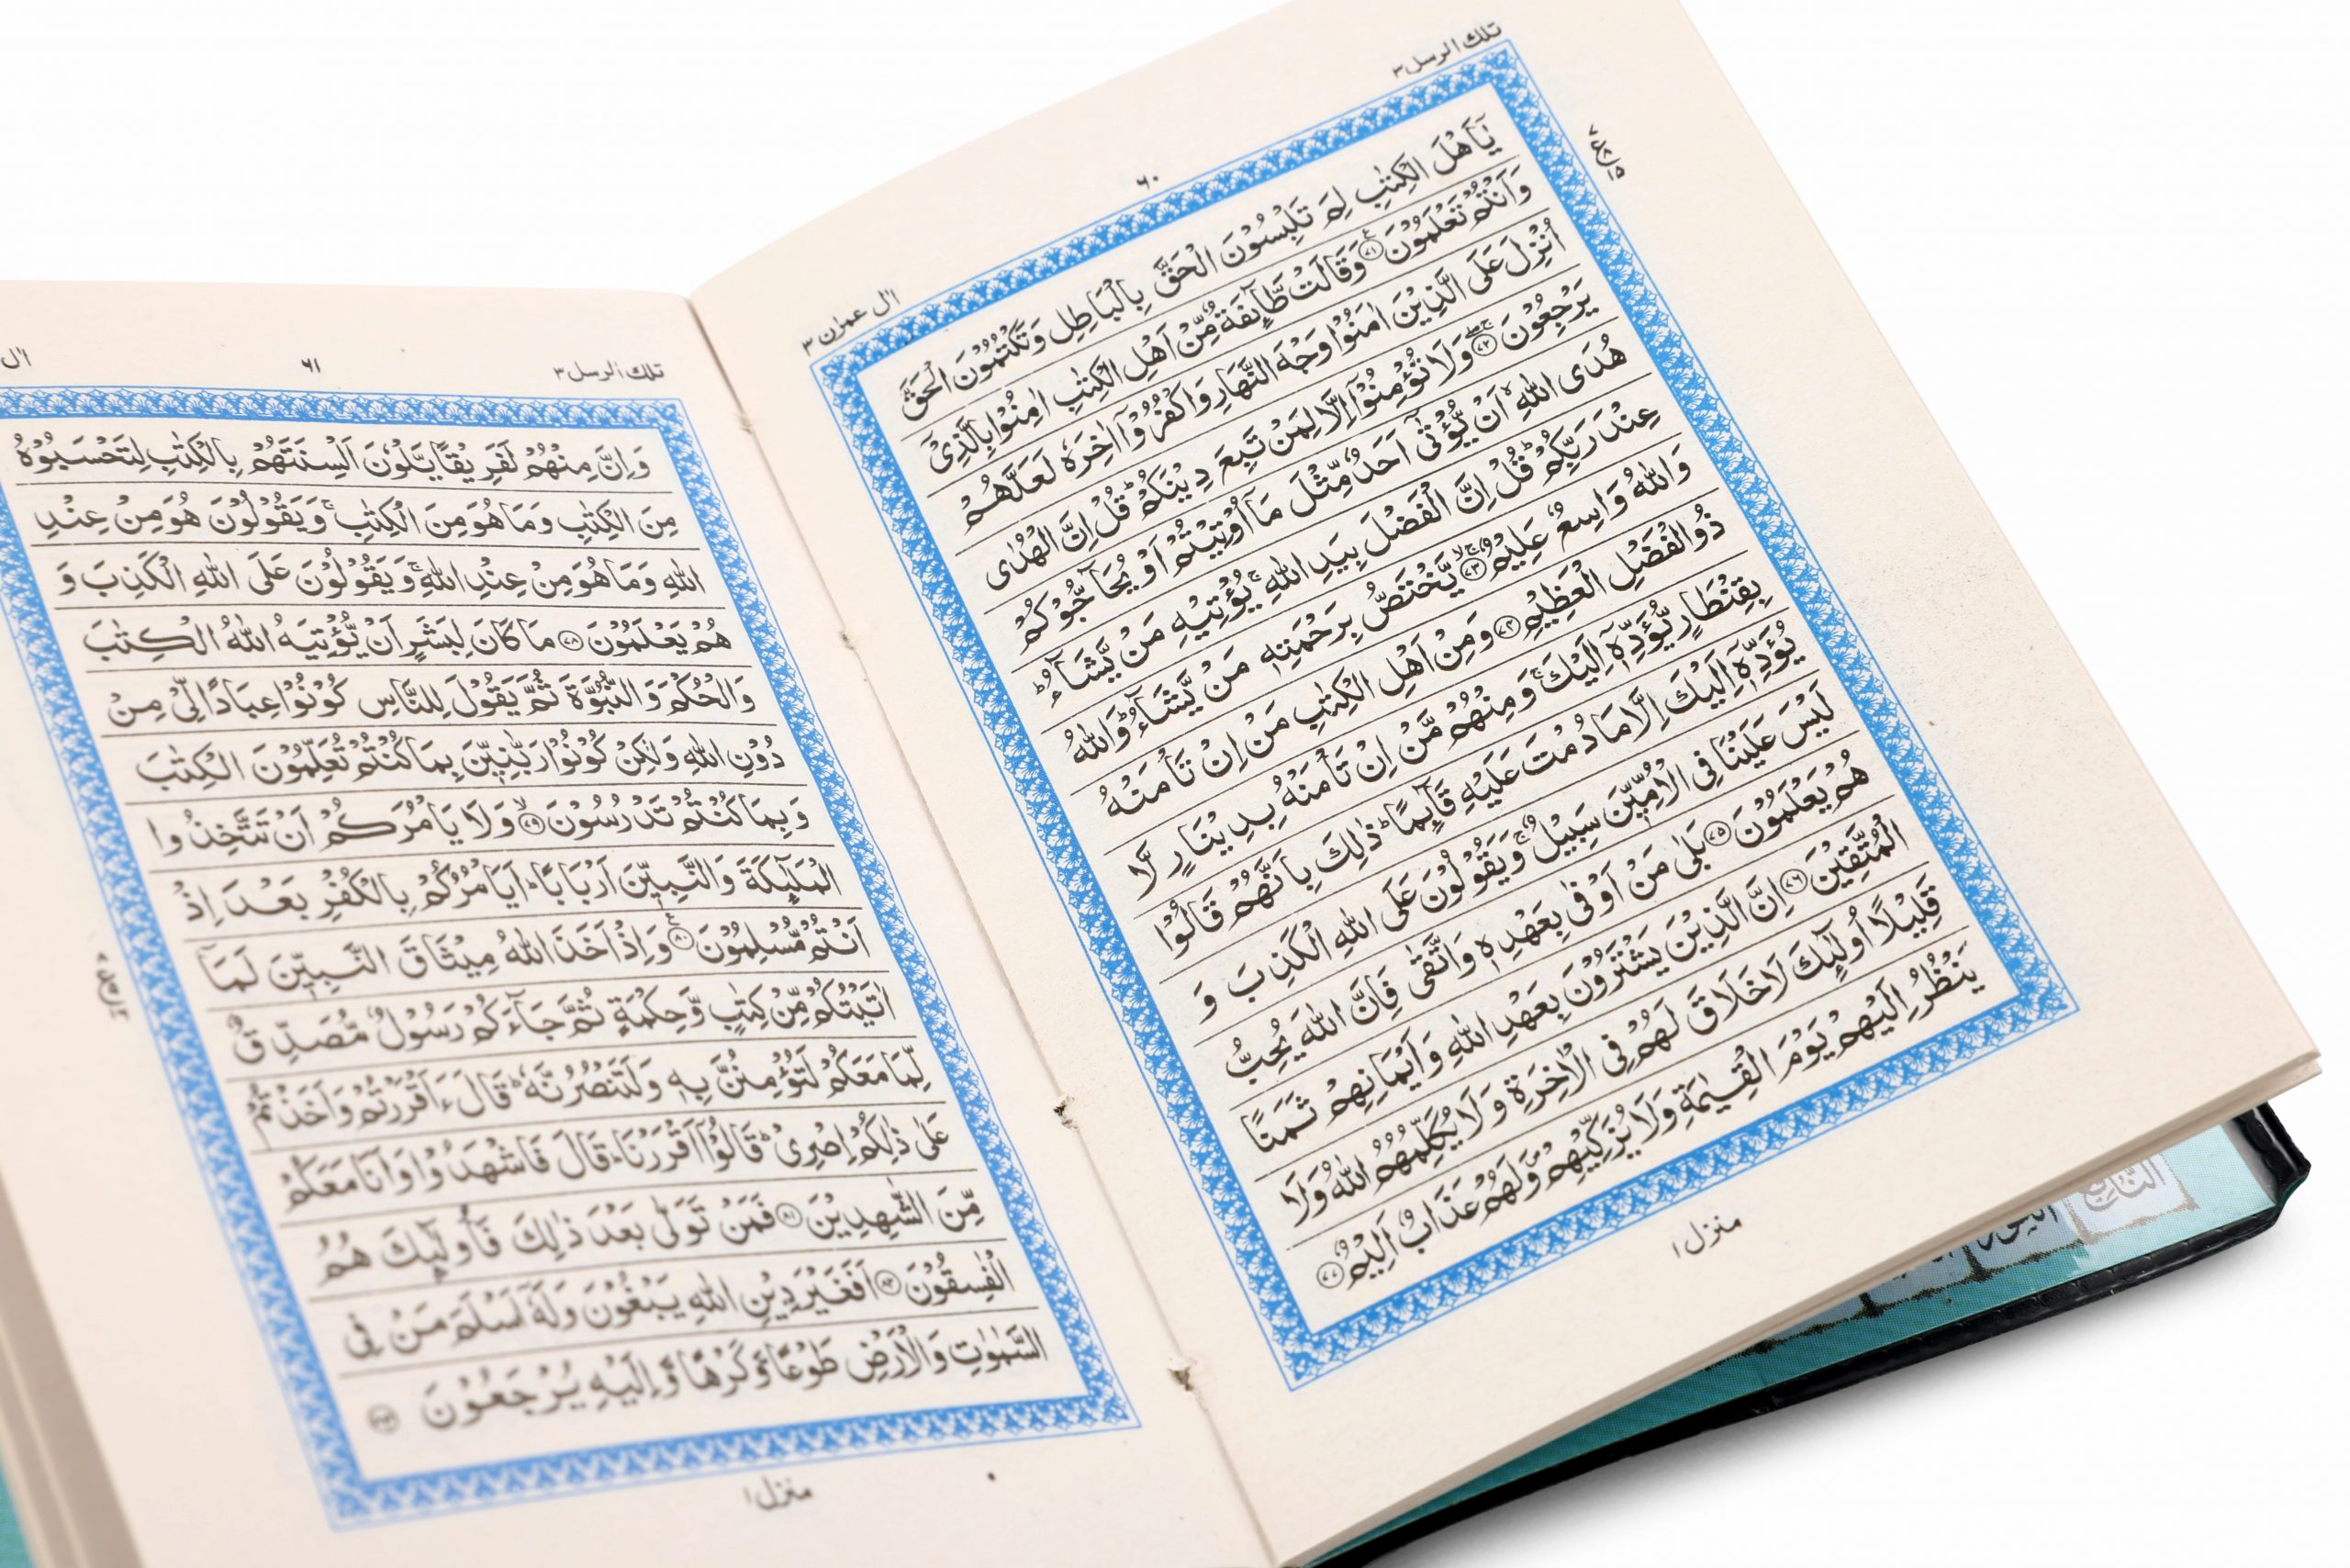 تلك الرسل ٣
٦٠
اٰل عمرٰن ٣
يٰٓاَهْلَ الْكِتٰبِ لِمَ تَلْبِسُوْنَ الْحَقَّ بِالْبَاطِلِ وَتَكْتُمُوْنَ الْحَقَّ
وَاَنْتُمْ تَعْلَمُوْنَ ﴿٧١﴾ وَقَالَتْ طَّآئِفَةٌ مِّنْ اَهْلِ الْكِتٰبِ اٰمِنُوْا بِالَّذِيْٓ
اُنْزِلَ عَلَى الَّذِيْنَ اٰمَنُوْا وَجْهَ النَّهَارِ وَاكْفُرُوْٓا اٰخِرَهٗ لَعَلَّهُمْ
يَرْجِعُوْنَ ﴿٧٢﴾ وَلَا تُؤْمِنُوْٓا اِلَّا لِمَنْ تَبِعَ دِيْنَكُمْ ؕ قُلْ اِنَّ الْهُدٰى
هُدَى اللّٰهِ ۙ اَنْ يُّؤْتٰٓى اَحَدٌ مِّثْلَ مَآ اُوْتِيْتُمْ اَوْ يُحَآجُّوْكُمْ
عِنْدَ رَبِّكُمْ ؕ قُلْ اِنَّ الْفَضْلَ بِيَدِ اللّٰهِ ۚ يُؤْتِيْهِ مَنْ يَّشَآءُ ؕ
وَاللّٰهُ وَاسِعٌ عَلِيْمٌ ﴿٧٣﴾ يَّخْتَصُّ بِرَحْمَتِهٖ مَنْ يَّشَآءُ ؕ وَاللّٰهُ
ذُو الْفَضْلِ الْعَظِيْمِ ﴿٧٤﴾ وَمِنْ اَهْلِ الْكِتٰبِ مَنْ اِنْ تَاْمَنْهُ
بِقِنْطَارٍ يُّؤَدِّهٖٓ اِلَيْكَ ۚ وَمِنْهُمْ مَّنْ اِنْ تَاْمَنْهُ بِدِيْنَارٍ لَّا
يُؤَدِّهٖٓ اِلَيْكَ اِلَّا مَا دُمْتَ عَلَيْهِ قَآئِمًا ؕ ذٰلِكَ بِاَنَّهُمْ قَالُوْا
لَيْسَ عَلَيْنَا فِى الْاُمِّيّٖنَ سَبِيْلٌ ۚ وَيَقُوْلُوْنَ عَلَى اللّٰهِ الْكَذِبَ وَ
هُمْ يَعْلَمُوْنَ ﴿٧٥﴾ بَلٰى مَنْ اَوْفٰى بِعَهْدِهٖ وَاتَّقٰى فَاِنَّ اللّٰهَ يُحِبُّ
الْمُتَّقِيْنَ ﴿٧٦﴾ اِنَّ الَّذِيْنَ يَشْتَرُوْنَ بِعَهْدِ اللّٰهِ وَاَيْمَانِهِمْ ثَمَنًا
قَلِيْلًا اُولٰٓئِكَ لَا خَلَاقَ لَهُمْ فِى الْاٰخِرَةِ وَلَا يُكَلِّمُهُمُ اللّٰهُ وَلَا
يَنْظُرُ اِلَيْهِمْ يَوْمَ الْقِيٰمَةِ وَلَا يُزَكِّيْهِمْ ۪ وَلَهُمْ عَذَابٌ اَلِيْمٌ ﴿٧٧﴾
منزل ١
تلك الرسل ٣
٦١
اٰل
وَاِنَّ مِنْهُمْ لَفَرِيْقًا يَّلْوٗنَ اَلْسِنَتَهُمْ بِالْكِتٰبِ لِتَحْسَبُوْهُ
مِنَ الْكِتٰبِ وَمَا هُوَ مِنَ الْكِتٰبِ ۚ وَيَقُوْلُوْنَ هُوَ مِنْ عِنْدِ
اللّٰهِ وَمَا هُوَ مِنْ عِنْدِ اللّٰهِ ۚ وَيَقُوْلُوْنَ عَلَى اللّٰهِ الْكَذِبَ وَ
هُمْ يَعْلَمُوْنَ ﴿٧٨﴾ مَا كَانَ لِبَشَرٍ اَنْ يُّؤْتِيَهُ اللّٰهُ الْكِتٰبَ
وَالْحُكْمَ وَالنُّبُوَّةَ ثُمَّ يَقُوْلَ لِلنَّاسِ كُوْنُوْا عِبَادًا لِّيْ مِنْ
دُوْنِ اللّٰهِ وَلٰكِنْ كُوْنُوْا رَبّٰنِيّٖنَ بِمَا كُنْتُمْ تُعَلِّمُوْنَ الْكِتٰبَ
وَبِمَا كُنْتُمْ تَدْرُسُوْنَ ﴿٧٩﴾ وَلَا يَاْمُرَكُمْ اَنْ تَتَّخِذُوا
الْمَلٰٓئِكَةَ وَالنَّبِيّٖنَ اَرْبَابًا ؕ اَيَاْمُرُكُمْ بِالْكُفْرِ بَعْدَ اِذْ
اَنْتُمْ مُّسْلِمُوْنَ ﴿٨٠﴾ وَاِذْ اَخَذَ اللّٰهُ مِيْثَاقَ النَّبِيّٖنَ لَمَآ
اٰتَيْتُكُمْ مِّنْ كِتٰبٍ وَّحِكْمَةٍ ثُمَّ جَآءَكُمْ رَسُوْلٌ مُّصَدِّقٌ
لِّمَا مَعَكُمْ لَتُؤْمِنُنَّ بِهٖ وَلَتَنْصُرُنَّهٗ ؕ قَالَ ءَاَقْرَرْتُمْ وَاَخَذْتُمْ
عَلٰى ذٰلِكُمْ اِصْرِيْ ؕ قَالُوْٓا اَقْرَرْنَا ؕ قَالَ فَاشْهَدُوْا وَاَنَا مَعَكُمْ
مِّنَ الشّٰهِدِيْنَ ﴿٨١﴾ فَمَنْ تَوَلّٰى بَعْدَ ذٰلِكَ فَاُولٰٓئِكَ هُمُ
الْفٰسِقُوْنَ ﴿٨٢﴾ اَفَغَيْرَ دِيْنِ اللّٰهِ يَبْغُوْنَ وَلَهٗٓ اَسْلَمَ مَنْ فِى
السَّمٰوٰتِ وَالْاَرْضِ طَوْعًا وَّكَرْهًا وَّاِلَيْهِ يُرْجَعُوْنَ ﴿٨٣﴾
منزل ١